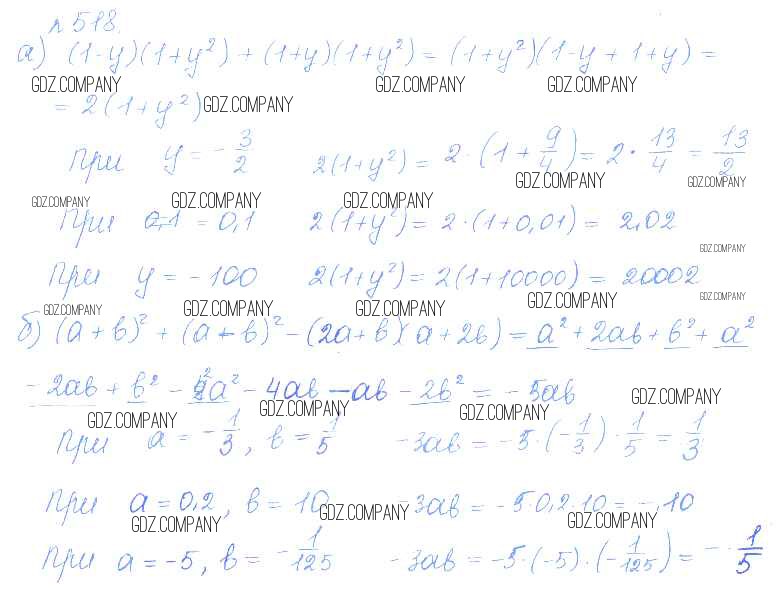 № 518.
а) (1-y)(1+y²) + (1+y)(1+y²) = (1+y²)(1-y+1+y) =
GDZ.COMPANY GDZ.COMPANY GDZ.COMPANY
= 2(1+y²) GDZ.COMPANY
При y = -3/2 2(1+y²) = 2·(1+9/4) = 2·13/4 = 13/2
GDZ.COMPANY GDZ.COMPANY
GDZ.COMPANY GDZ.COMPANY GDZ.COMPANY
При = 0,1 2(1+y²) = 2·(1+0,01) = 2,02
GDZ.COMPANY
При y = -100 2(1+y²) = 2(1+10000) = 20002
GDZ.COMPANY GDZ.COMPANY GDZ.COMPANY GDZ.COMPANY GDZ.COMPANY
б) (a+b)² + (a-b)² - (2a+b)(a+2b) = a² + 2ab + b² + a²
- 2ab + b² - 2a² - 4ab - ab - 2b² = -5ab
GDZ.COMPANY GDZ.COMPANY GDZ.COMPANY GDZ.COMPANY
При a = -1/3, b = 1/5 -3ab = -5·(-1/3)·1/5 = 1/3
При a = 0,2, b = 10 -3ab = -5·0,2·10 = -10
GDZ.COMPANY GDZ.COMPANY GDZ.COMPANY
При a = -5, b = -1/125 -3ab = -5·(-5)·(-1/125) = -1/5